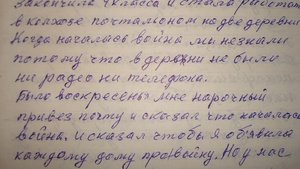 закончила 4 класса и стала работат
в колхозе почтальоном на две деревни
Когда началась война ми незнали
потому что в деревни не были
ни радео ни телефона.
Было воскресены мне нарочный
привез почту и сказал что началась
война. и сказал чтобы я обявила
каждому дому провойну. Но у нас